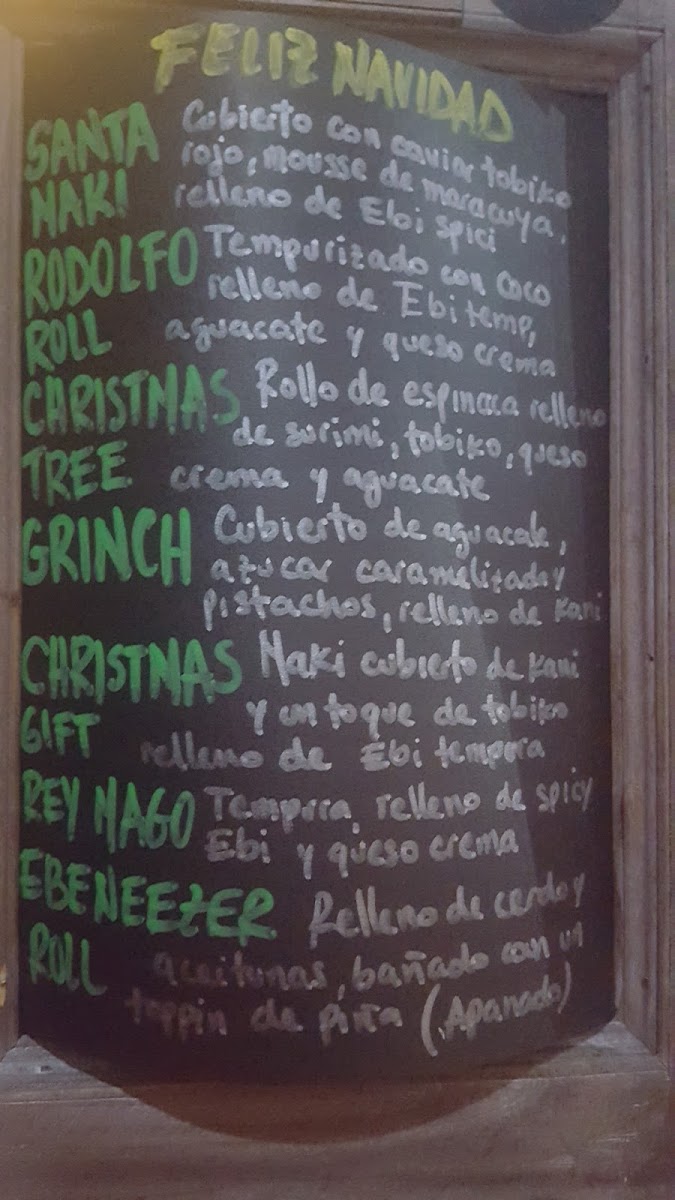 FELIZ NAVIDAD
SANTA Cubierto con caviar tobiko
MAKI rojo, mousse de maracuya,
relleno de Ebi spici
RODOLFO Tempurizado con coco
relleno de Ebi temp,
ROLL aguacate y queso crema
CHRISTMAS Rollo de espinaca relleno
de surimi, tobiko, queso
TREE crema y aguacate
GRINCH Cubierto de aguacate,
azucar caramelizada y
pistachos, relleno de Kani
CHRISTMAS Maki cubierto de Kani
GIFT y un toque de tobiko
relleno de Ebi tempora
REY MAGO Tempura relleno de spicy
Ebi y queso crema
EBENEEZER Relleno de cerdo y
ROLL aceitunas, bañado con un
toppin de piña (Apanado)